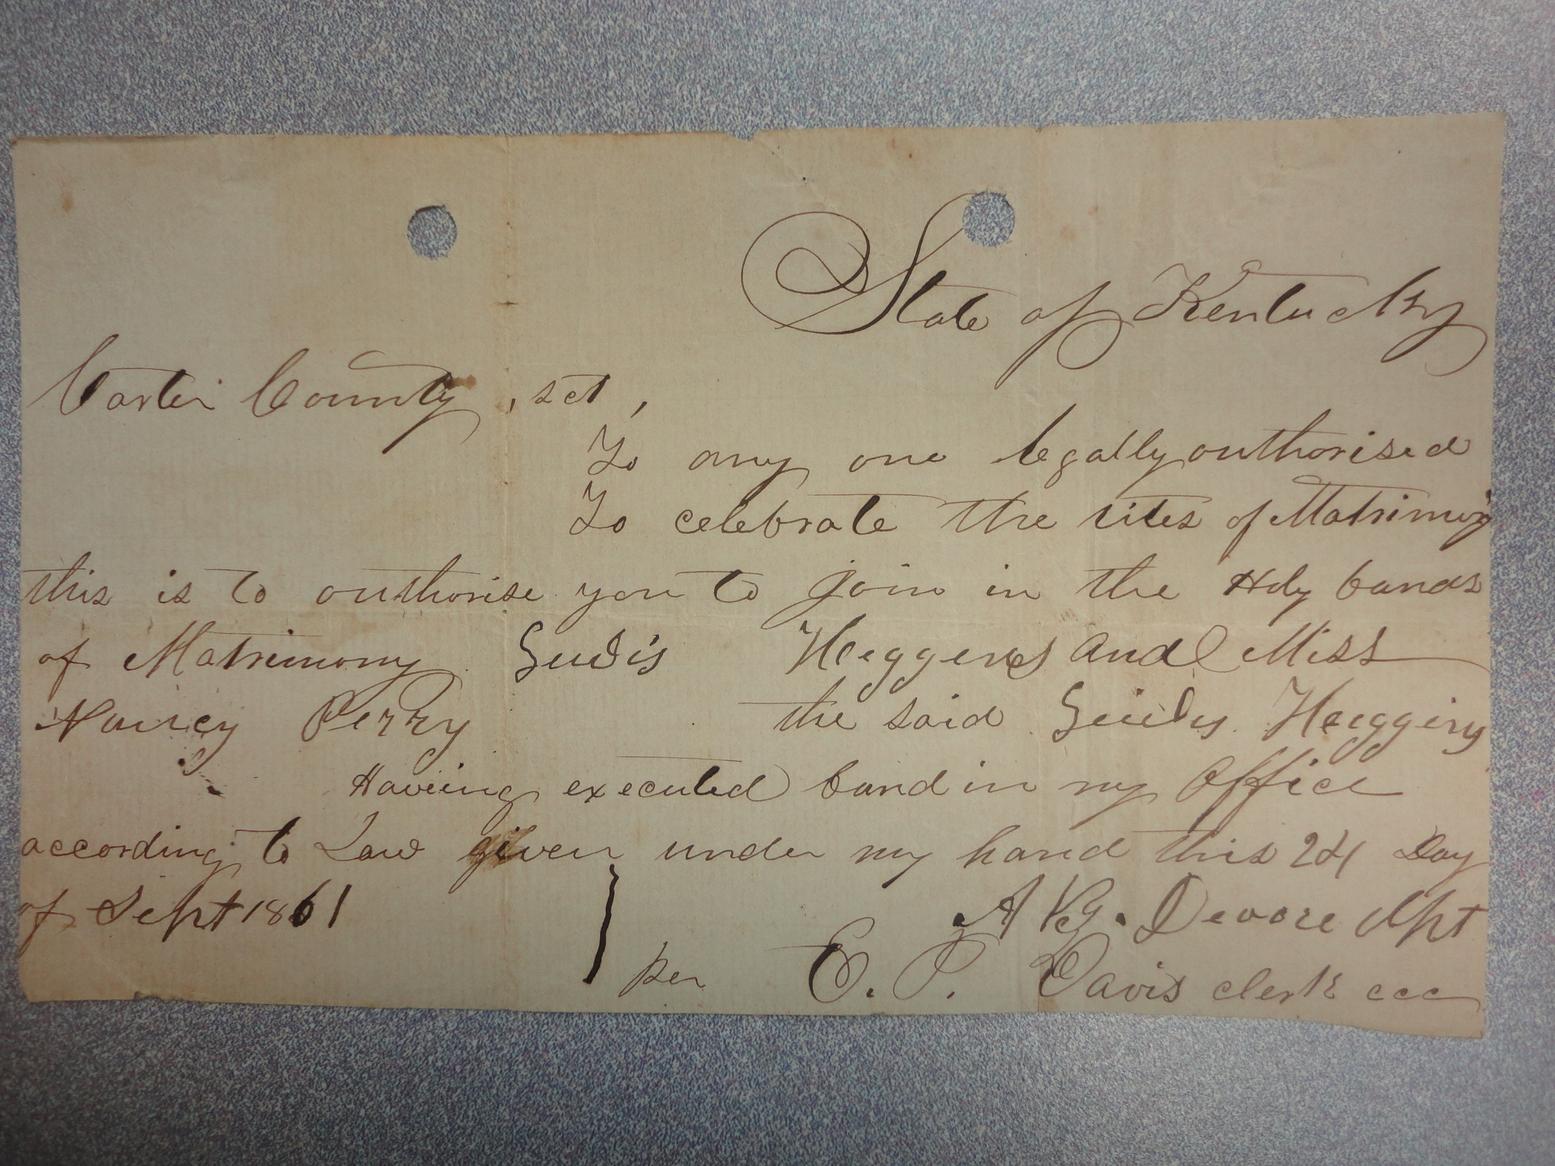 State of Kentucky
Carter County, sct,
To any one legally authorised
To celebrate the rites of Matrimony
this is to authorise you to join in the Holy bands
of Matrimony Heggens and Miss
Nancy Perry the said Heggins
Haveing executed band in my Office
according to Law given under my hand this 24 Day
of Sept 1861
Devore dpt
per E. P. Davis clerk ccc